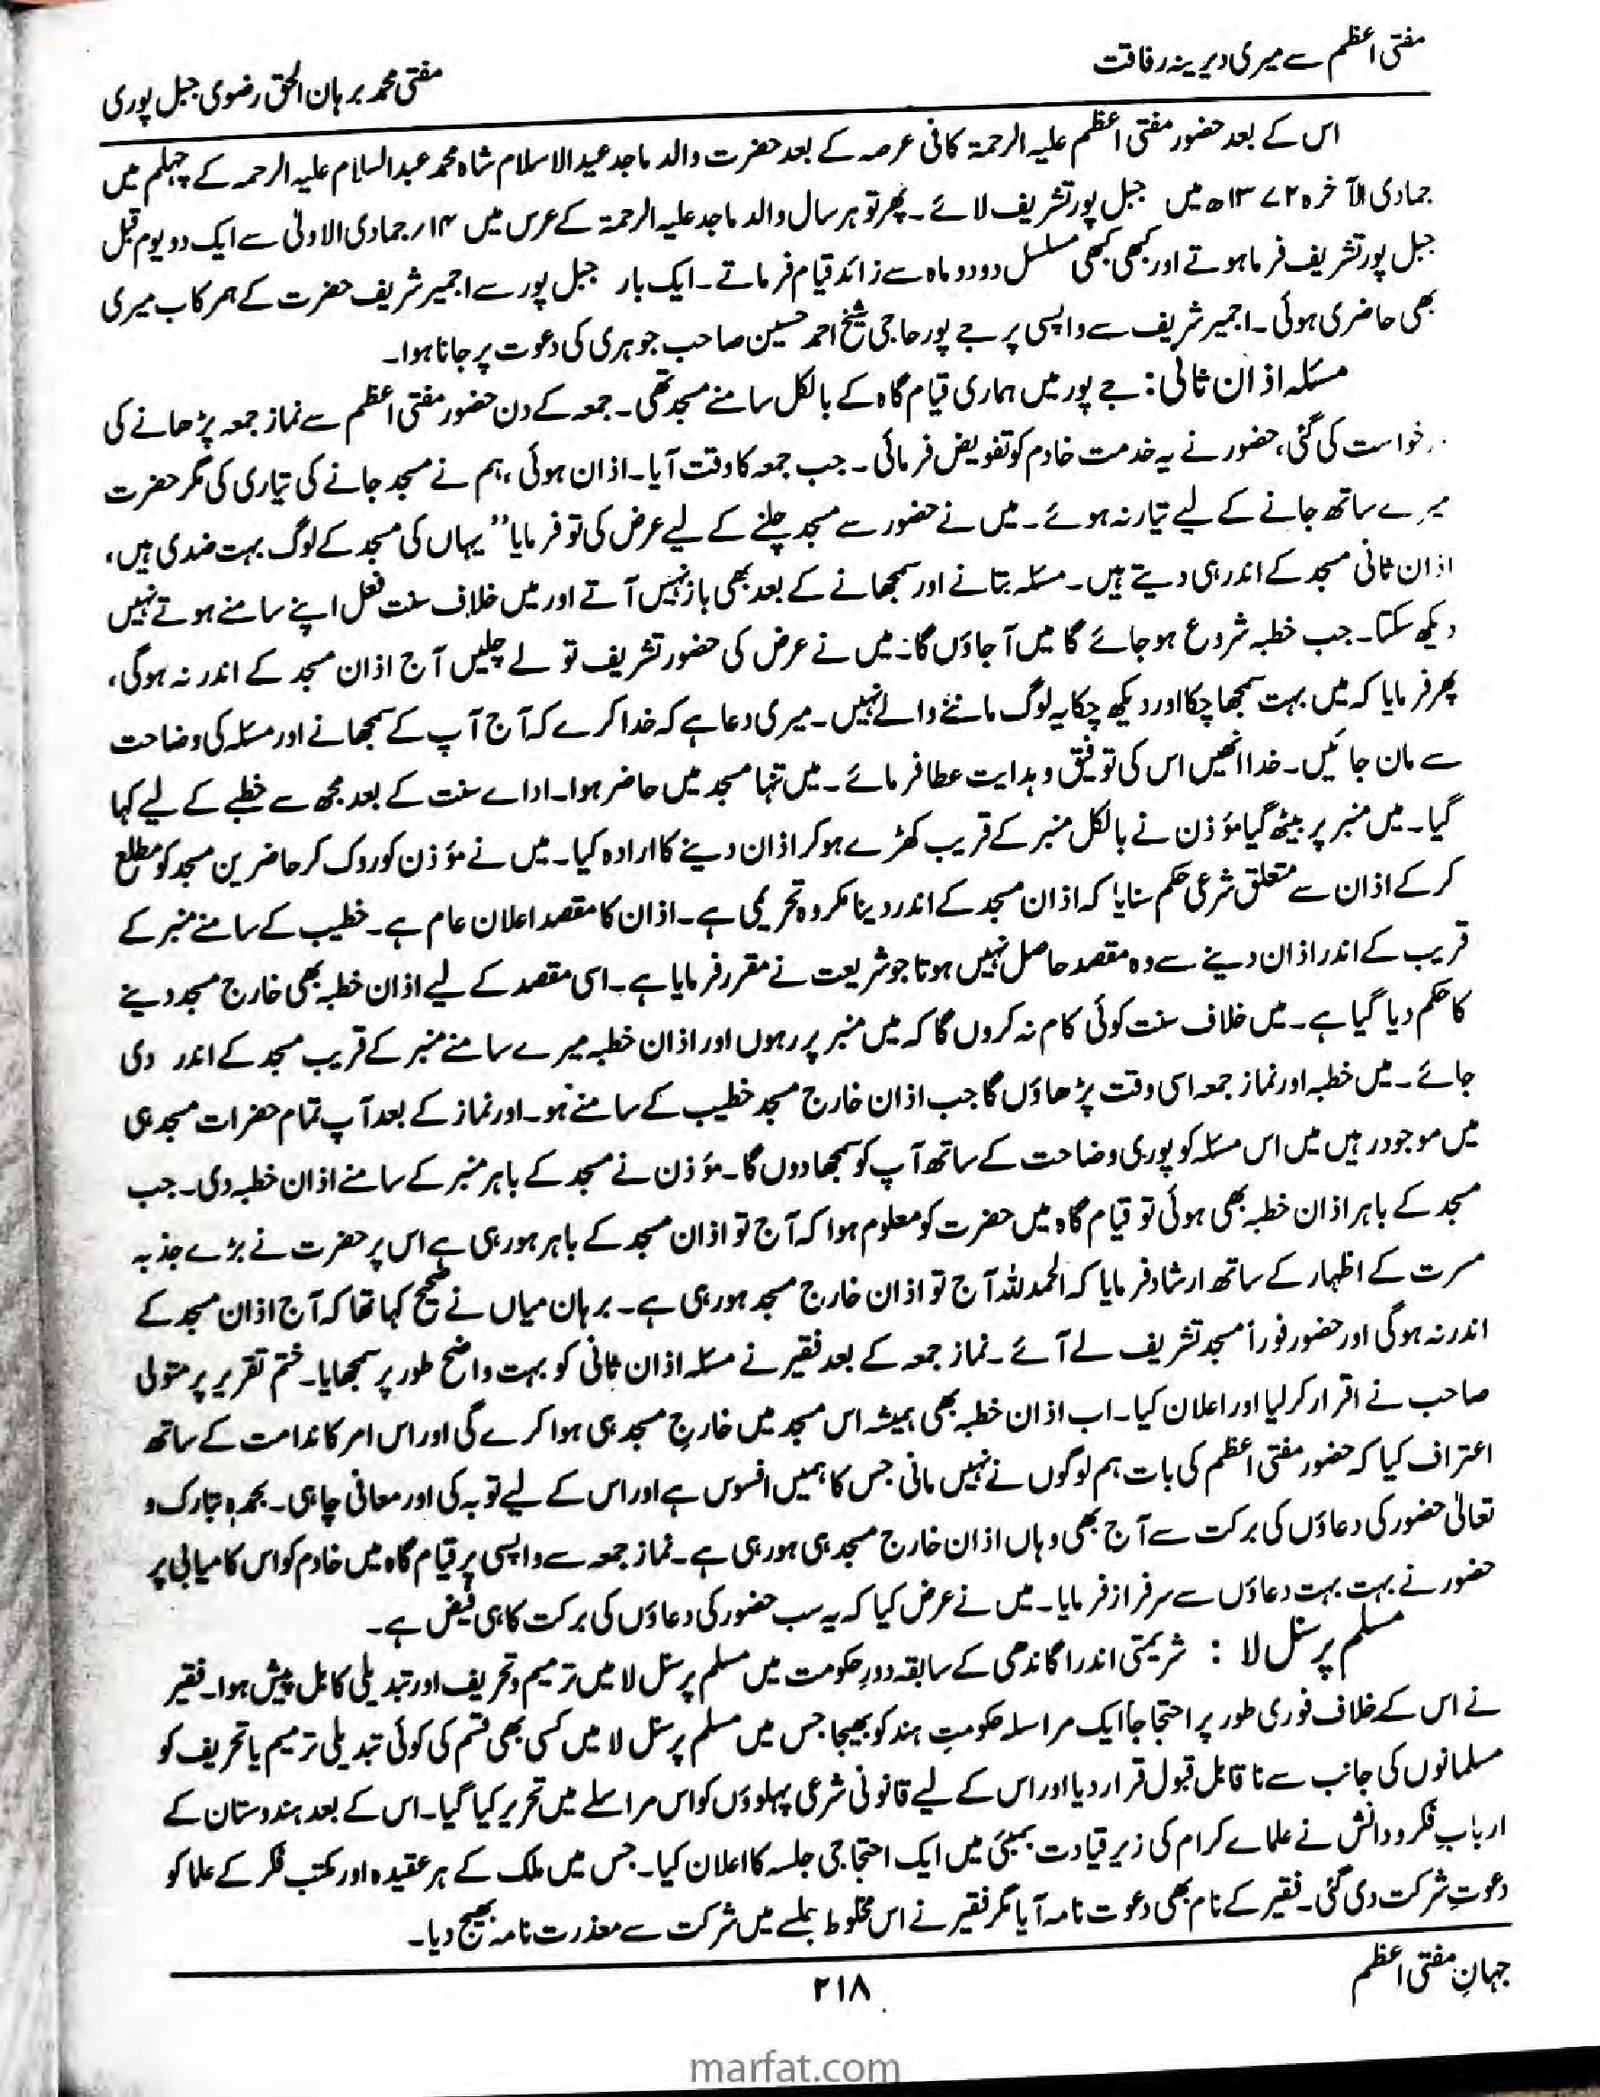 مفتی اعظم سے میری دیرینہ رفاقت
مفتی محمد برہان الحق رضوی جبل پوری
اس کے بعد حضور مفتی اعظم علیہ الرحمۃ کافی عرصہ کے بعد حضرت والد ماجد عید الاسلام شاہ محمد عبدالسلام علیہ الرحمہ کے چہلم میں
جمادی الآخرہ ۱۳۷۲ھ میں جبل پور تشریف لائے۔ پھر تو ہر سال والد ماجد علیہ الرحمۃ کے عرس میں ۱۴؍ جمادی الاولیٰ سے ایک دو یوم قبل
جبل پور تشریف فرما ہوتے اور کبھی کبھی مسلسل دو دو ماہ سے زائد قیام فرماتے۔ ایک بار جبل پور سے اجمیر شریف حضرت کے ہمرکاب میری
بھی حاضری ہوئی۔ اجمیر شریف سے واپسی پر جے پور حاجی شیخ احمد حسین صاحب جوہری کی دعوت پر جانا ہوا۔
مسئلہ اذان ثانی: جے پور میں ہماری قیام گاہ کے بالکل سامنے مسجد تھی۔ جمعہ کے دن حضور مفتی اعظم سے نماز جمعہ پڑھانے کی
رخواست کی گئی، حضور نے یہ خدمت خادم کو تفویض فرمائی۔ جب جمعہ کا وقت آیا۔ اذان ہوئی، ہم نے مسجد جانے کی تیاری کی مگر حضرت
میرے ساتھ جانے کے لیے تیار نہ ہوئے۔ میں نے حضور سے مسجد چلنے کے لیے عرض کی تو فرمایا ’’یہاں کی مسجد کے لوگ بہت ضدی ہیں،
اذان ثانی مسجد کے اندر ہی دیتے ہیں۔ مسئلہ بتانے اور سمجھانے کے بعد بھی باز نہیں آتے اور میں خلاف سنت فعل اپنے سامنے ہوتے نہیں
دیکھ سکتا۔ جب خطبہ شروع ہو جائے گا میں آ جاؤں گا۔ میں نے عرض کی حضور تشریف تو لے چلیں آج اذان مسجد کے اندر نہ ہوگی،
پھر فرمایا کہ میں بہت سمجھا چکا اور دیکھ چکا یہ لوگ ماننے والے نہیں۔ میری دعا ہے کہ خدا کرے کہ آج آپ کے سمجھانے اور مسئلہ کی وضاحت
سے مان جائیں۔ خدا انھیں اس کی توفیق و ہدایت عطا فرمائے۔ میں تنہا مسجد میں حاضر ہوا۔ اداے سنت کے بعد مجھ سے خطبے کے لیے کہا
گیا۔ میں منبر پر بیٹھ گیا مؤذن نے بالکل منبر کے قریب کھڑے ہو کر اذان دینے کا ارادہ کیا۔ میں نے مؤذن کو روک کر حاضرین مسجد کو مطلع
کر کے اذان سے متعلق شرعی حکم سنایا کہ اذان مسجد کے اندر دینا مکروہ تحریمی ہے۔ اذان کا مقصد اعلان عام ہے۔ خطیب کے سامنے منبر کے
قریب کے اندر اذان دینے سے وہ مقصد حاصل نہیں ہوتا جو شریعت نے مقرر فرمایا ہے۔ اسی مقصد کے لیے اذان خطبہ بھی خارج مسجد دینے
کا حکم دیا گیا ہے۔ میں خلاف سنت کوئی کام نہ کروں گا کہ میں منبر پر رہوں اور اذان خطبہ میرے سامنے منبر کے قریب مسجد کے اندر دی
جائے۔ میں خطبہ اور نماز جمعہ اسی وقت پڑھاؤں گا جب اذان خارج مسجد خطیب کے سامنے ہو۔ اور نماز کے بعد آپ تمام حضرات مسجد ہی
میں موجود رہیں میں اس مسئلہ کو پوری وضاحت کے ساتھ آپ کو سمجھا دوں گا۔ مؤذن نے مسجد کے باہر منبر کے سامنے اذان خطبہ دی۔ جب
مسجد کے باہر اذان خطبہ بھی ہوئی تو قیام گاہ میں حضرت کو معلوم ہوا کہ آج تو اذان مسجد کے باہر ہو رہی ہے اس پر حضرت نے بڑے جذبہ
مسرت کے اظہار کے ساتھ ارشاد فرمایا کہ الحمد للہ آج تو اذان خارج مسجد ہو رہی ہے۔ برہان میاں نے صحیح کہا تھا کہ آج اذان مسجد کے
اندر نہ ہوگی اور حضور فوراً مسجد تشریف لے آئے۔ نماز جمعہ کے بعد فقیر نے مسئلہ اذان ثانی کو بہت واضح طور پر سمجھایا۔ ختم تقریر پر متولی
صاحب نے اقرار کر لیا اور اعلان کیا۔ اب اذان خطبہ بھی ہمیشہ اس مسجد میں خارجِ مسجد ہی ہوا کرے گی اور اس امر کا ندامت کے ساتھ
اعتراف کیا کہ حضور مفتی اعظم کی بات ہم لوگوں نے نہیں مانی جس کا ہمیں افسوس ہے اور اس کے لیے توبہ کی اور معافی چاہی۔ بحمدہٖ تبارک و
تعالیٰ حضور کی دعاؤں کی برکت سے آج بھی وہاں اذان خارج مسجد ہی ہو رہی ہے۔ نماز جمعہ سے واپسی پر قیام گاہ میں خادم کو اس کامیابی پر
حضور نے بہت بہت دعاؤں سے سرفراز فرمایا۔ میں نے عرض کیا کہ یہ سب حضور کی دعاؤں کی برکت کا ہی فیض ہے۔
مسلم پرسنل لا : شریمتی اندرا گاندھی کے سابقہ دورِ حکومت میں مسلم پرسنل لا میں ترمیم و تحریف اور تبدیلی کا بل پیش ہوا۔ فقیر
نے اس کے خلاف فوری طور پر احتجاجاً ایک مراسلہ حکومتِ ہند کو بھیجا جس میں مسلم پرسنل لا میں کسی بھی قسم کی کوئی تبدیلی ترمیم یا تحریف کو
مسلمانوں کی جانب سے ناقابل قبول قرار دیا اور اس کے لیے قانونی شرعی پہلوؤں کو اس مراسلے میں تحریر کیا گیا۔ اس کے بعد ہندوستان کے
اربابِ فکر و دانش نے علماے کرام کی زیر قیادت بمبئی میں ایک احتجاجی جلسہ کا اعلان کیا۔ جس میں ملک کے ہر عقیدہ اور مکتب فکر کے علما کو
دعوتِ شرکت دی گئی۔ فقیر کے نام بھی دعوت نامہ آیا مگر فقیر نے اس مخلوط جلسے میں شرکت سے معذرت نامہ بھیج دیا۔
جہانِ مفتی اعظم
۲۱۸
marfat.com